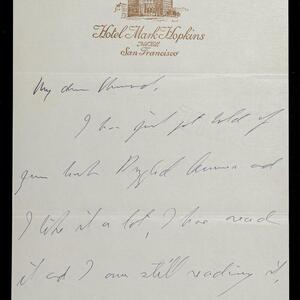 Hotel Mark Hopkins
San Francisco
My dear
I have just got hold of
your book and
I like it a lot, I have read
it and I am still reading it,